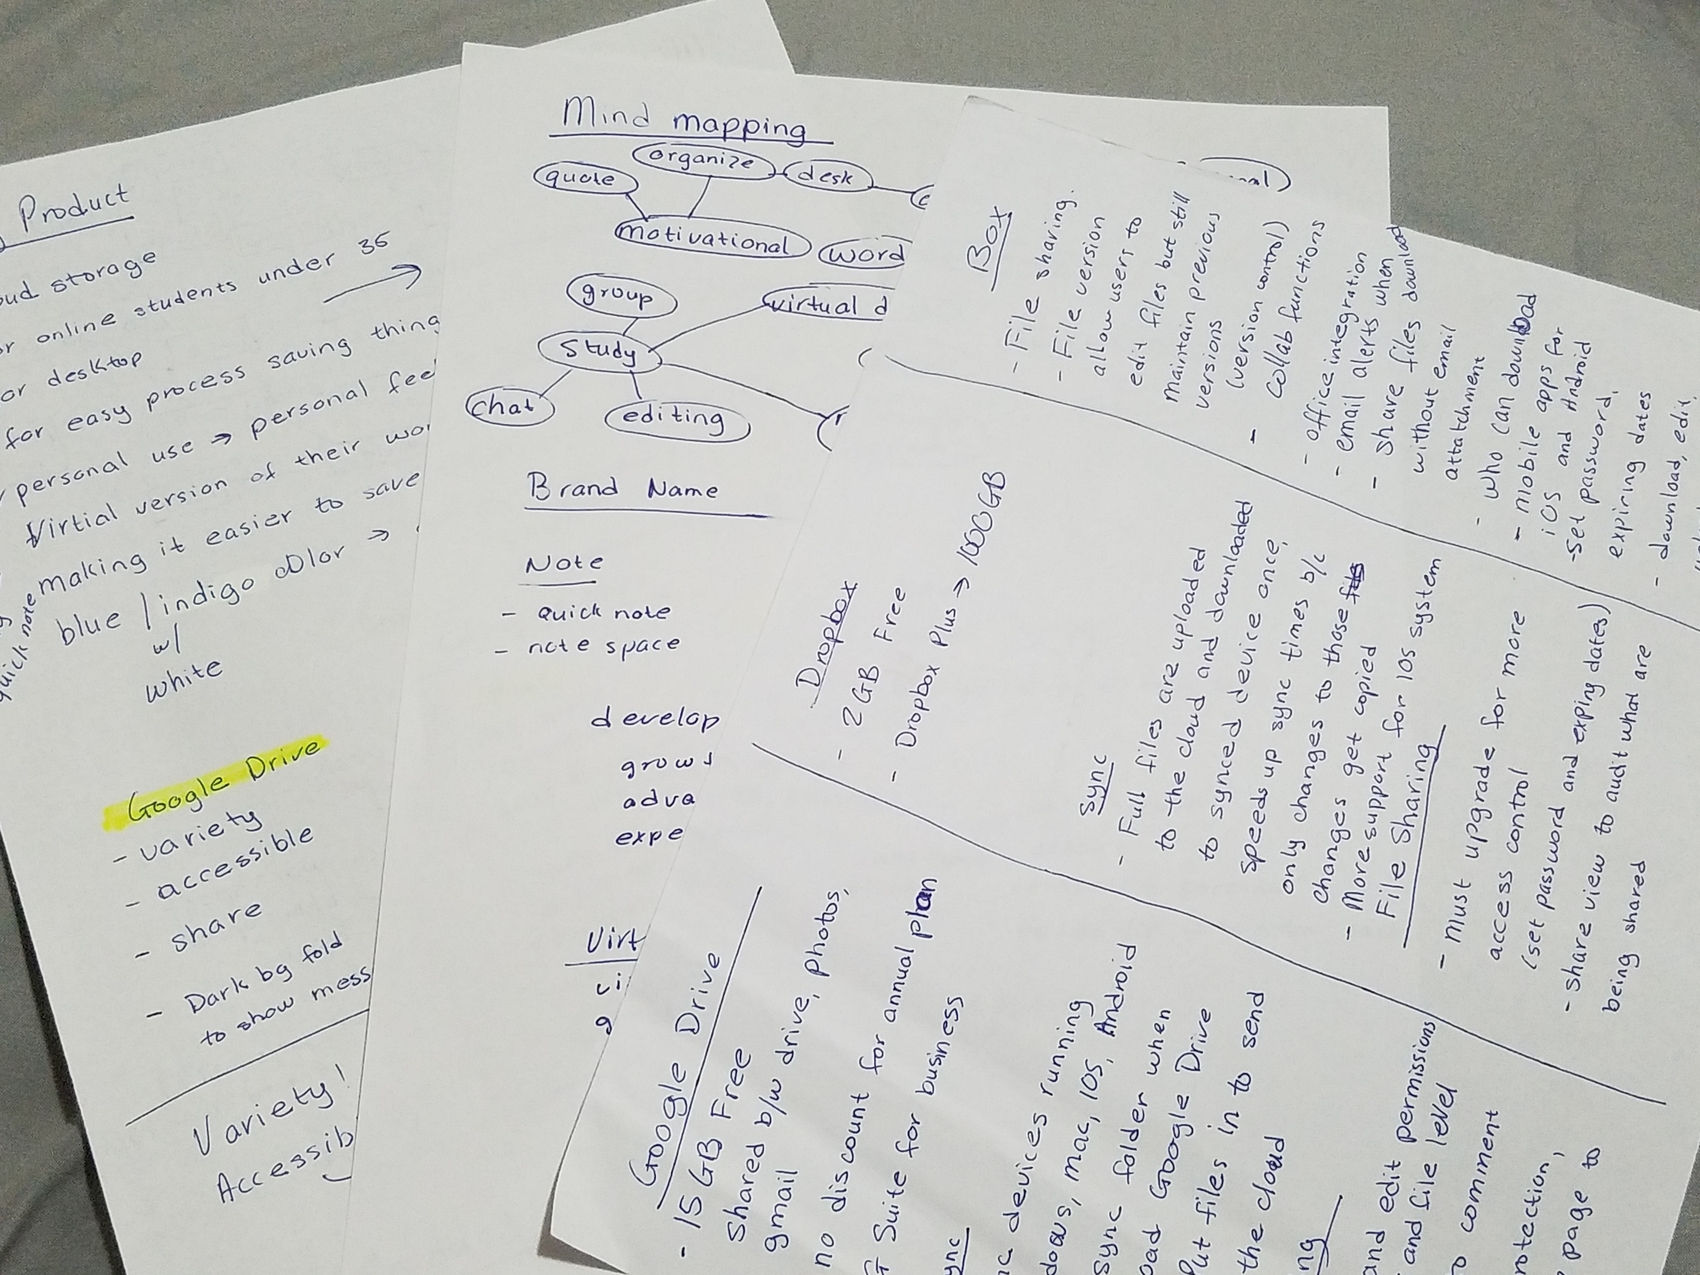 Product
storage
online students under 35
or desktop
for easy process saving thing
personal use → personal fee
Virtial version of their wo
making it easier to save
blue / indigo color →
w/
white
quick note
Google Drive
- variety
- accessible
- share
- Dark bg fold
to show mess
Variety!
Accessib
Mind mapping
quote
organize
desk
motivational
word
group
virtual d
Study
chat
editing
Brand Name
Note
- quick note
- note space
develop
grow
adva
expe
Virt
Box
- File sharing.
- File version
allow users to
edit files but still
maintain previous
versions
(version control)
- Collab functions
- office integration
- email alerts when
- share files download
without email
attatchment
- who can download
- mobile apps for
iOS and Android
- set password,
expiring dates
- download, edit,
Dropbox
- 2GB Free
- Dropbox Plus → 1000GB
Sync
- Full files are uploaded
to the cloud and downloaded
to synced device once,
speeds up sync times b/c
only changes to those files
changes get copied
- More support for 10s system
File Sharing
- Must upgrade for more
access control
(set password and exping dates)
- share view to audit what are
being shared
Google Drive
- 15 GB Free
shared b/w drive, photos,
gmail
no discount for annual plan
G Suite for business
ync
devices running
dows, mac, IOS, Android
sync folder when
oad Google Drive
Put files in to send
the cloud
ng
and edit permissions
and file level
comment
rotection,
page to